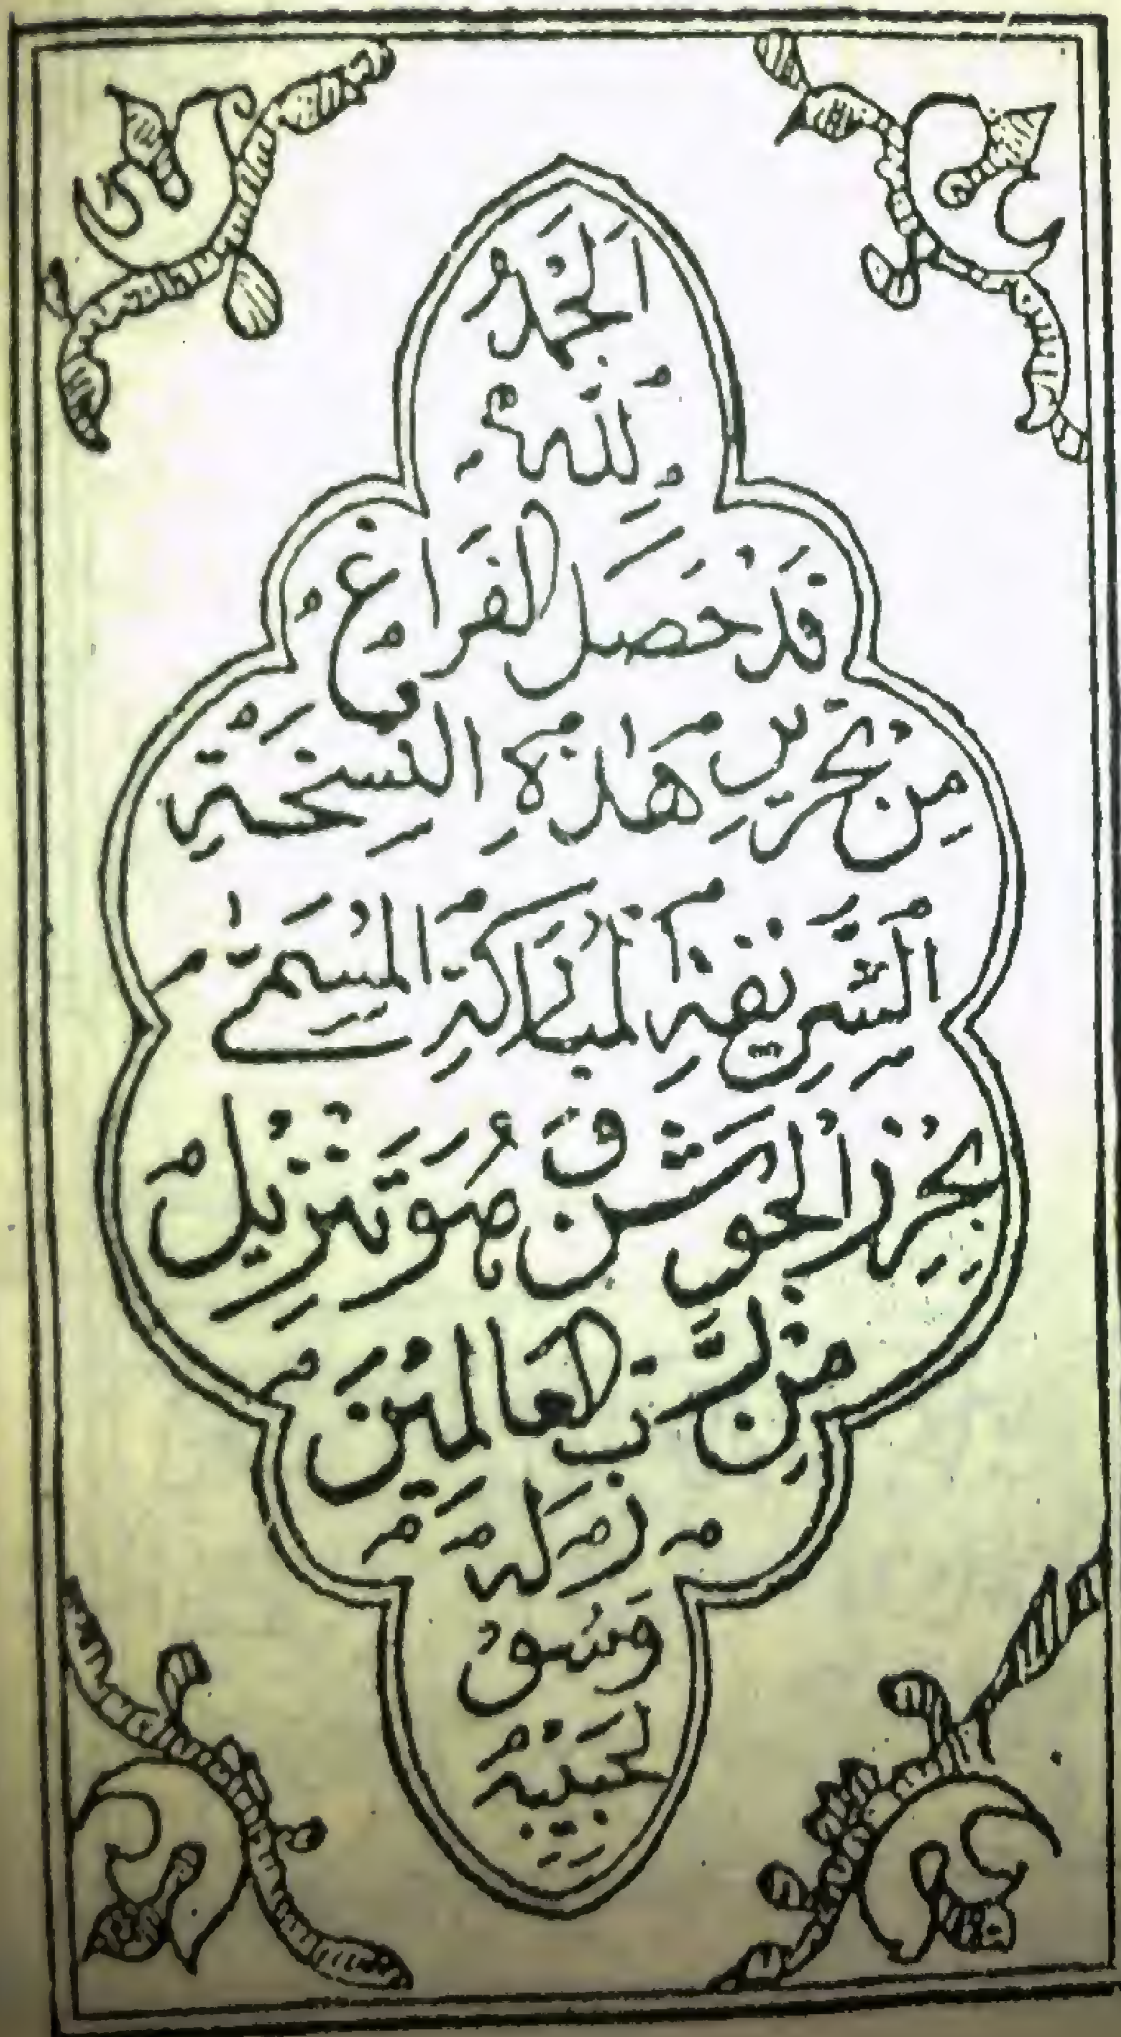 اَلْحَمْدُ
لِلّٰهِ
قَدْ حَصَلَ الْفَرَاغُ
مِنْ تَحْرِيْرِ هٰذِهِ النُّسْخَةِ
الشَّرِيْفَةِ الْمُبَارَكَةِ الْمُسَمّٰى
بِحِرْزِ الْجَوْشَنِ وَهُوَ تَنْزِيْلٌ
مِنْ رَّبِّ الْعَالَمِيْنَ
لَهُ
لِحَبِيْبِهِ